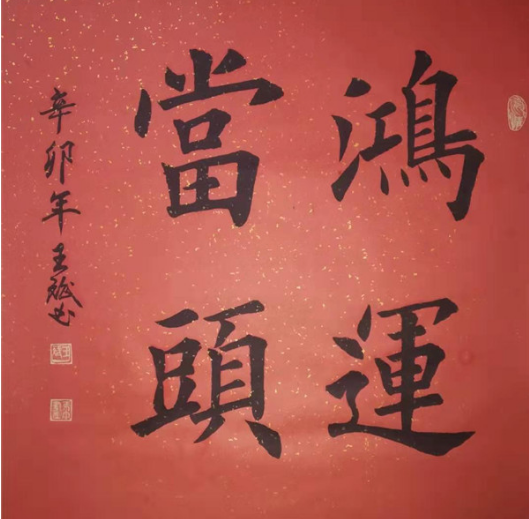 鴻運
當頭
辛卯年王斌书